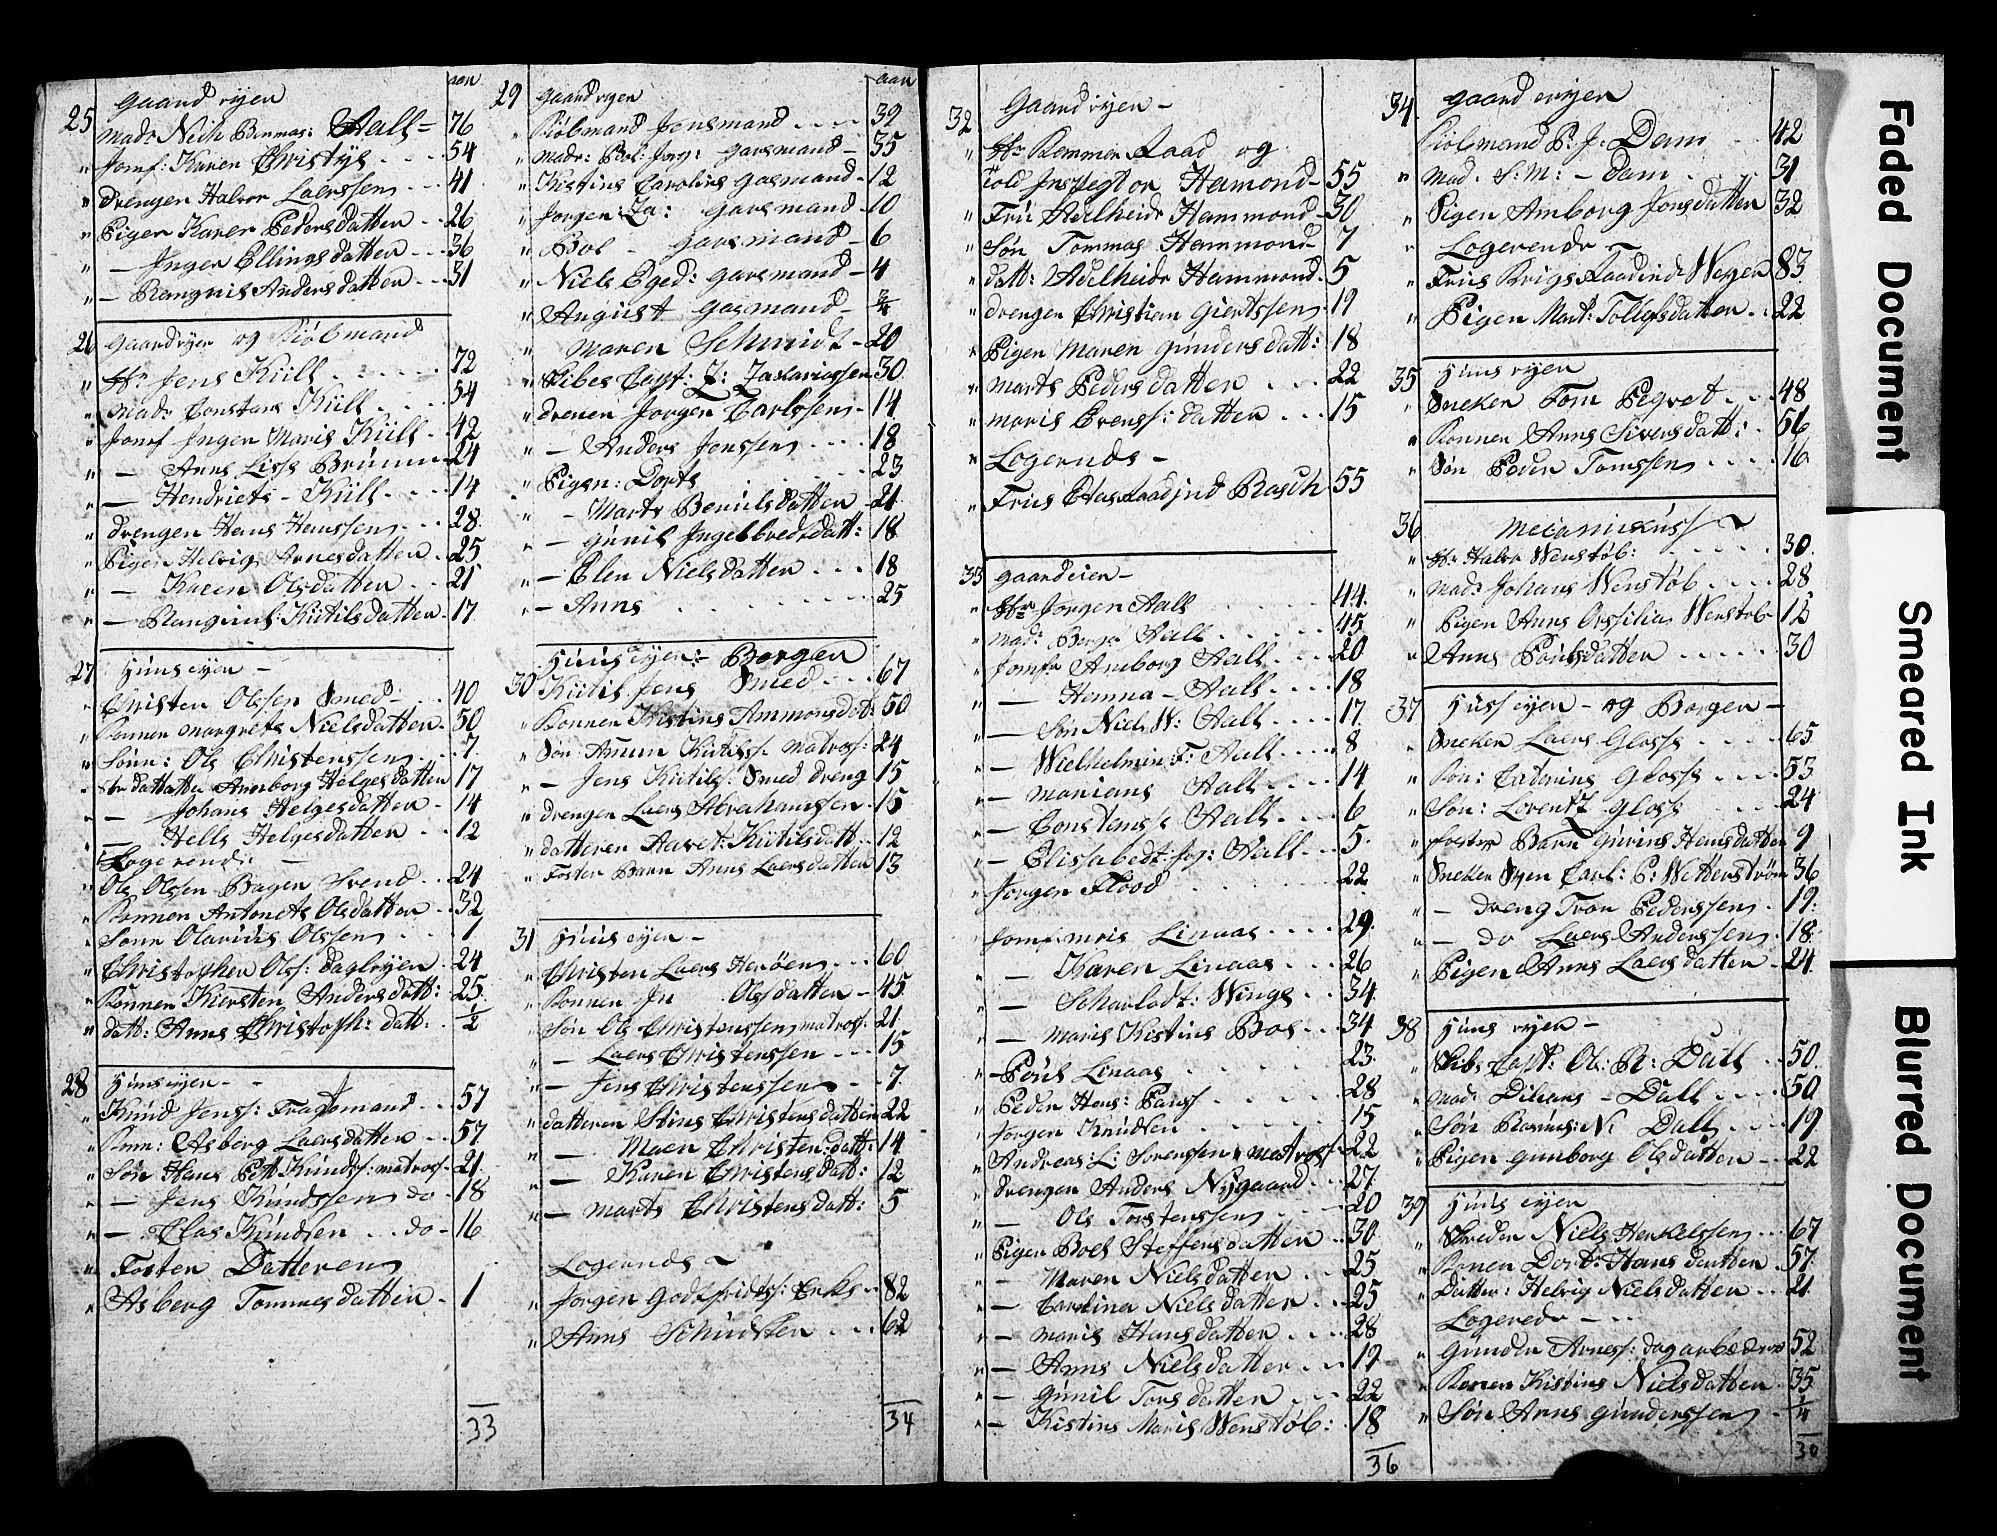 aar
25 Gaard ejer
Mad: Nich Benmas: Aall 76
" Jomf: Karen Christys 54
Drengen Halvor Laerssen 41
" Pigen Karen Pedersdatter 26
" — Inger Ellingsdatter 36
" — Rangnil Andersdatter 31
26 Gaardejer og Kiøbmand
" Hr Jens Kiill 72
" Mad: Constans Kiill 54
" Jomf Inger Maris Kiill 42
" — Anne Liss Brunn 24
" — Hendriets Kiill 14
Drengen Hans Hanssen 28
" Pigen Helvig Arnesdatter 25
" — Karen Olsdatter 21
" — Rangnil: Kittilsdatter 17
27 Huus ejer —
Christen Olssen Smed 40
" Konnen Margrets Nielsdatter 50
" Sönn: Ole Christenssen 7
datter Anborg Helgesdatter 17
" — Johans Helgesdatter 14
" — Hells Helgesdatter 12
Logerende —
" Ole Olssen Bager Svend 24
" Konnen Antonets Olsdatter 32
" Sönn Olavus Olssen 1
" Christopher Ols: daglejer 24
" Konnen Kiersten Andersdatt: 25
" datt: Anne Christoph: datt: ½
28 Huus ejer —
" Knud Jenss: Fragtmand 57
" Kon: Asberg Laersdatter 57
" Søn Hans Pett: Knudss: matros 21
" — Jens Knudssen do 18
" — Clas Knudsen do 16
" Foster Datteren
" Asberg Tommesdatter 1
33
aar
29 Gaard ejer
" Kiøbmand Jonsmand 39
" Madr: Bol: Jørg: Garsmand 35
" Kistins Carolins Gasmand 12
" Jørgen: Za: Garsmand 10
" Bol — Garsmand 6
" Niels Eged: Garsmand 4
" August Gasmand ¾
" Maren Schmidt 20
" Skibes Capt: Z: Zakariassen 30
" Drengen Jørgen Carlssen 14
" — Anders Jenssen 18
" Pigen: Dorts 23
" — Marts Bentilsdatter 21
" — Gunil Ingelbredsdatt: 18
" — Elen Nielsdatter 18
" — Anns 25
Huus ejer — Borger
30 Kittil Jens Smed 67
" Konnen Kistins Ammonsdat: 50
" Søn Amun Kittilss: matros: 24
" — Jens Kittils: Smed dreng 15
" Drengen Laers Abrahamssen 15
" datteren Aaret: Kittilsdatt 12
" Foster Barn Anne Laersdatter 13
31 Huus ejer —
" Christen Laers Herøen 60
" Konnen In Olsdatter 45
" Søn Ole Christenssen matros: 21
" — Laers Christenssen 15
" — Jens Christenssen 7
" datteren Stins Christensdatter 22
" — Maen Christen:datt: 14
" — Karen Christensdatt: 12
" — Marts Christensdatt: 5
Logerends
" Jørgen Godtfridss: Erks 82
" Anns Schudsten 62
34
32 Gaard ejer —
" Hr Kemmer Raad og
Told Inspegtør Hamond 55
" Frue Adelheide Hammond 30
" Søn Tommas Hammond 7
" datt: Adelheide Hammond 5
" Drengen Christian Giertssen 19
" Pigen Maren Gundersdatt: 18
" Marts Pedersdatter 22
" Maris Evenss: datter 15
" Logernds —
" Frue Etasraadinde Rasch 55
33 Gaardeier —
" Hr Jorgen Aall 44
" Mad: Borge Aall 45
" Jomfr: Amborg Aall 20
" — Hanna — Aall 18
" — Søn Niels W: Aall 17
" — Wielhelmin F: Aall 8
" — Marians Aall 14
" — Constanse Aall 6
" — Elisabedt: Jør: Aall 5
" Jorgen Flood 22
Jomf: Maris Linaas 29
" — Karen Linaas 26
" — Scharlodt: Winge 34
" — Maris Kistins Boe 34
" Poul Linaas 23
" Peder Hans: Pans 28
" Jorgen Knudsen 15
" Andreas: L: Sørenssen Matros 22
" Drengen Anders Nygaard 27
" — Ole Torstenssen 20
" Pigen Boel Steffensdatter 30
" — Maren Nielsdatter 25
" — Carolina Nielsdatter 25
" — Maris Hansdatter 28
" — Anns Nielsdatter 19
" — Gunil Torsdatter 22
" — Kistins Maris Wenstøb: 18
36
34 Gaard ejer
Kiøbmand P: J: Dam 42
" Mad. S: M: — Dam 31
" Pigen Amborg Jonsdatter 32
" Logerende —
" Frue Krigs Raadinde Weyer 83
" Pigen Mart: Tollefsdatter 22
35 Huus ejer
" Sneker Tom Pegret 48
" Konnen Anns Siversdatt: 56
" Søn Peder Tomssen 16
36 Mecanicuss
" Hr Halvor Wenstøb: 30
" Mad: Johans Wenstøb 28
" Pigen Anns Orsilia Wenstøb 12
" Anns Poulsdatter 30
37 Huss ejer — og Borger —
" Sneker Laers Gloss 65
" Kon: Catarins Gloss 53
" Søn: Lorentz Gloss 24
" Foster Barn Gurine Hansdatter 9
" Sneker Svend Carl: P: Wetterstrøm 36
" — Dreng Tron Pederssen 19
" — do Laers Anderssen 18
" Pigen Anns Laersdatter 24
38 Huus ejer —
" Skibs Capt: Ol: R: Dall 50
" Mad: Dilians — Dall 50
" Søn Rasmus: N: Dall 19
" Pigen Gunborg Olsdatter 22
39 Huus ejer
" Skreder Niels Henkelssen 67
" Konen Dort: Hansdatter 57
" Datter: Helvig Nielsdatter 21
Logerede —
" Gunder Arness: dagarbeder 52
" Konen Kistins Nielsdatter 35
" Søn Arns Gunderssen ¼
30
Faded Document
Smeared Ink
Blurred Document